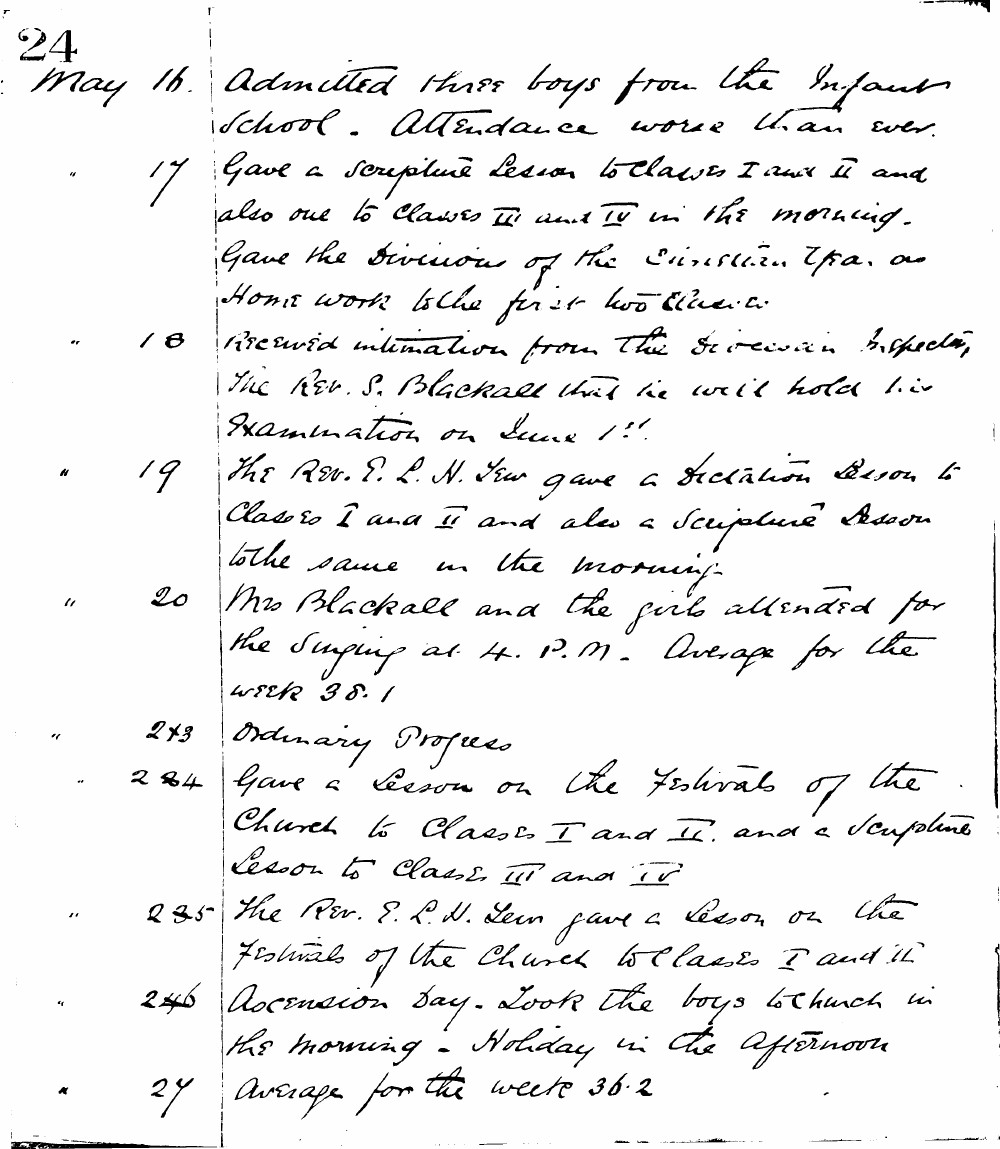 24
May 16. Admitted three boys from the Infant
School. Attendance worse than ever.
" 17 Gave a Scripture Lesson to Classes I and II and
also one to Classes III and IV in the morning.
Gave the Divisions of the Christian Year as
Home work to the first two Classes.
" 18 Received intimation from the Diocesan Inspector,
The Rev. S. Blackall that he will hold his
Examination on June 1st.
" 19 The Rev. E. L. H. Tew gave a Dictation Lesson to
Classes I and II and also a Scripture Lesson
to the same in the morning.
" 20 Mrs Blackall and the girls attended for
the Singing at 4. P.M. Average for the
week 38.1
" 23 Ordinary Progress
" 24 Gave a Lesson on the Festivals of the
Church to Classes I and II. and a Scripture
Lesson to Classes III and IV
" 25 The Rev. E. L. H. Tew gave a Lesson on the
Festivals of the Church to Classes I and II
" 26 Ascension Day. Took the boys to Church in
the morning - Holiday in the Afternoon
" 27 Average for the week 36.2